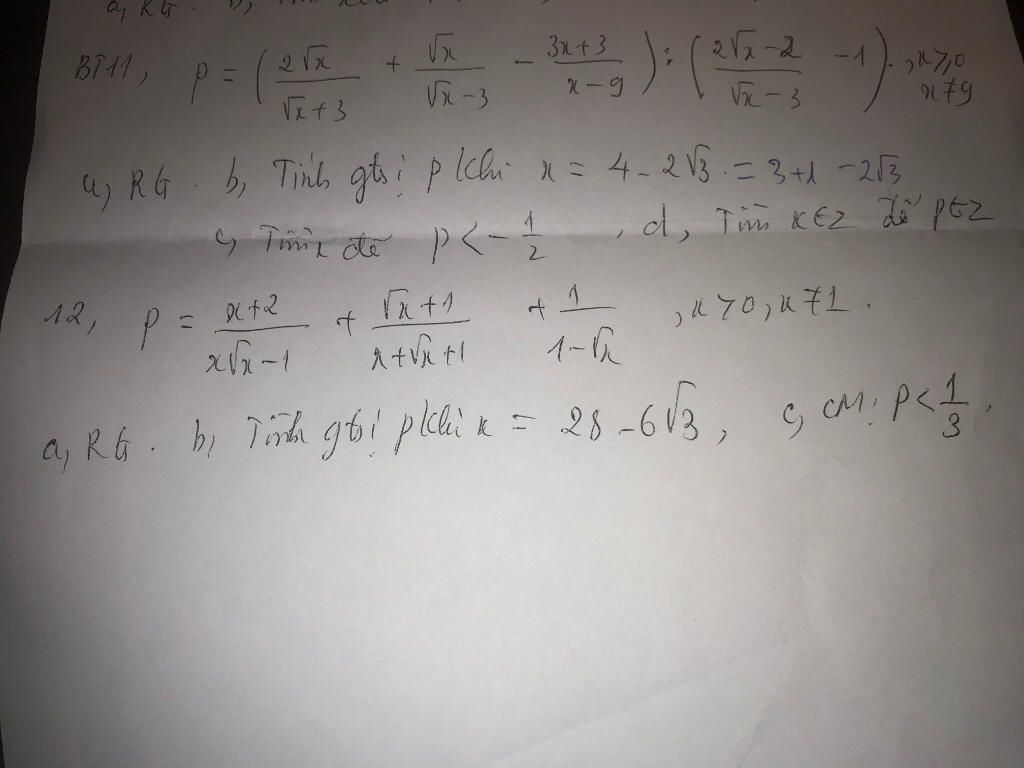 a, RG. b,
BT11, P = (2√x/(√x+3) + √x/(√x-3) - (3x+3)/(x-9)) : ((2√x-2)/(√x-3) - 1). , x≥0 x≠9
a, RG. b, Tính gtrị P khi x = 4-2√3 = 3+1-2√3
c, Tìm x để P<-1/2, d, Tìm x∈Z để P∈Z
12, P = (x+2)/(x√x-1) + (√x+1)/(x+√x+1) + 1/(1-√x), x>0, x≠1.
a, RG. b, Tính gtrị P khi x = 28-6√3, c, CM: P<1/3.